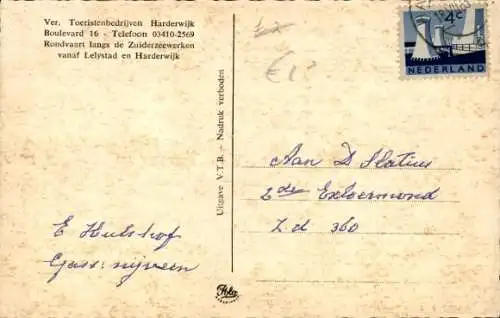 Ver. Toeristenbedrijven Harderwijk
Boulevard 16 - Telefoon 03410-2569
Rondvaart langs de Zuiderzeewerken
vanaf Lelystad en Harderwijk
4c
NEDERLAND
€1?
Uitgave V.T.B. — Nadruk verboden
Aan D Statius
2de Exloermond
Z d 360
E Hulshof
Gass. nijveen